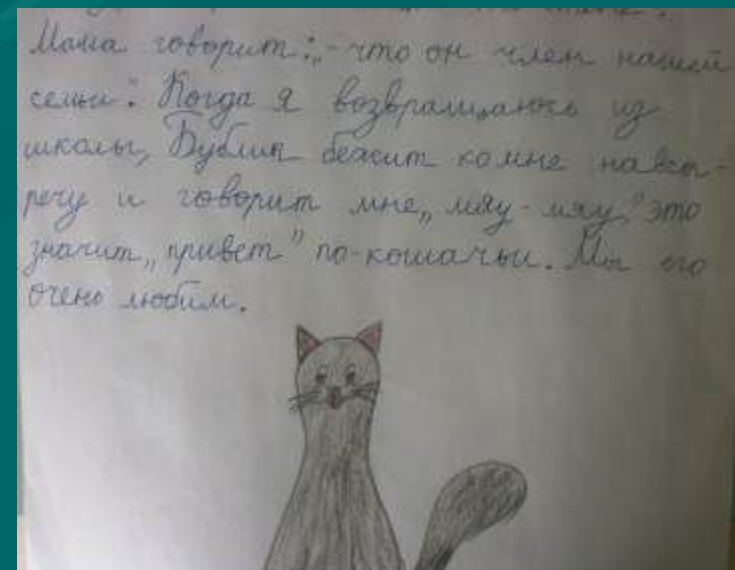 Мама говорит:„-что он член нашей
семьи". Когда я возвращаюсь из
школы, Бублик бежит ко мне навст-
речу и говорит мне „мяу-мяу," это
значит „привет" по-кошачьи. Мы его
очень любим.